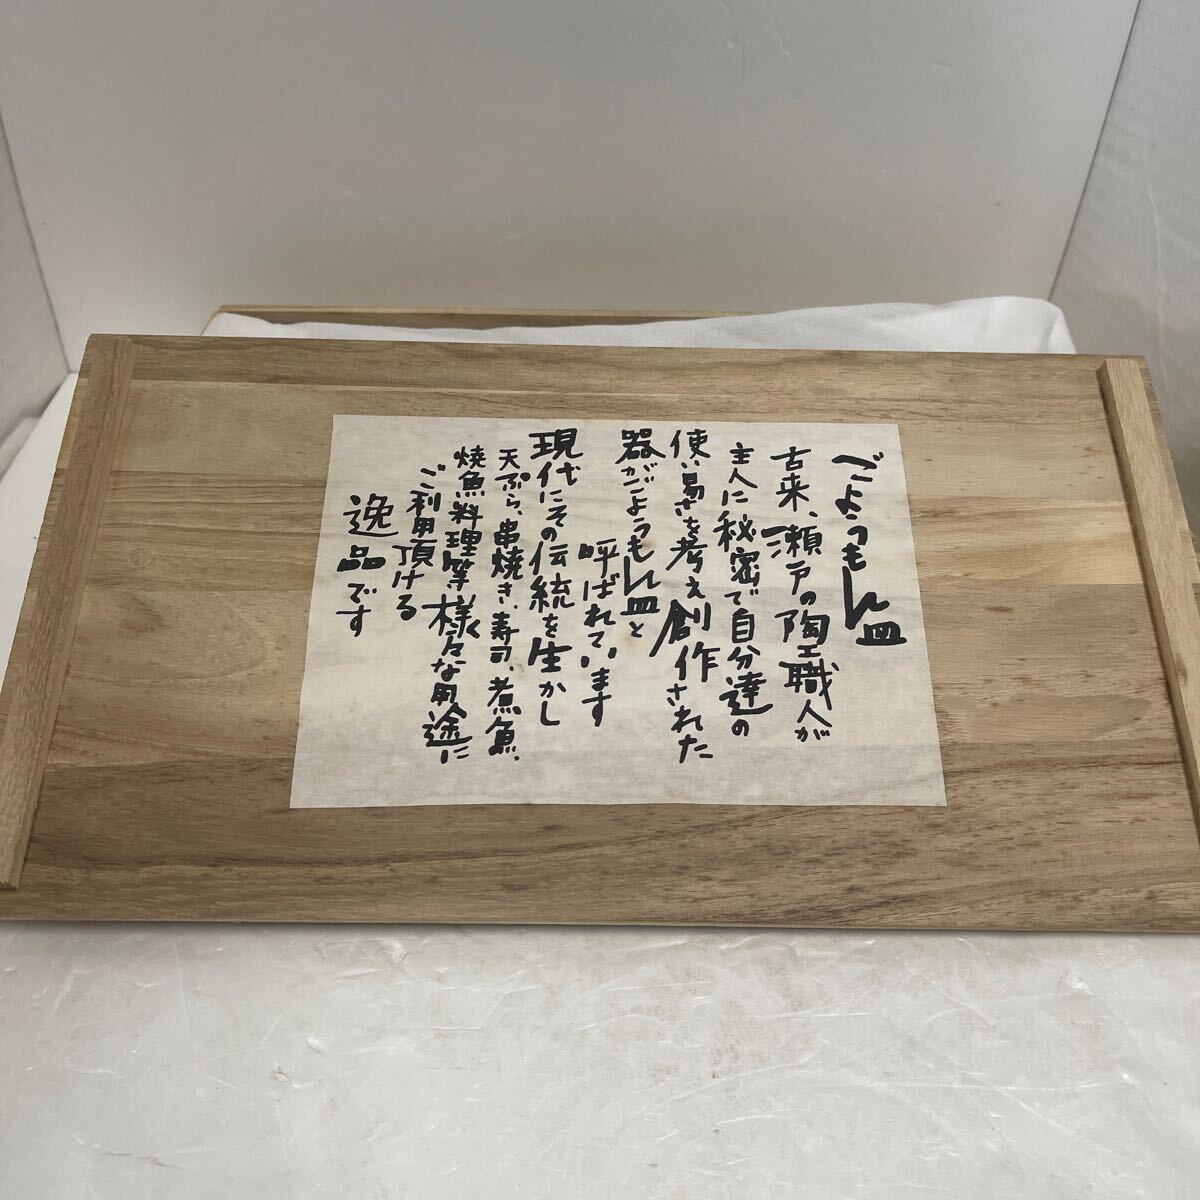 ごようもん皿
古来、瀬戸の陶工職人が
主人に秘密で自分達の
使い易さを考え創作された
器がごようもん皿と
呼ばれています
現代にその伝統を生かし
天ぷら、串焼き、寿司、煮魚、
焼魚料理等様々な用途に
ご利用頂ける
逸品です